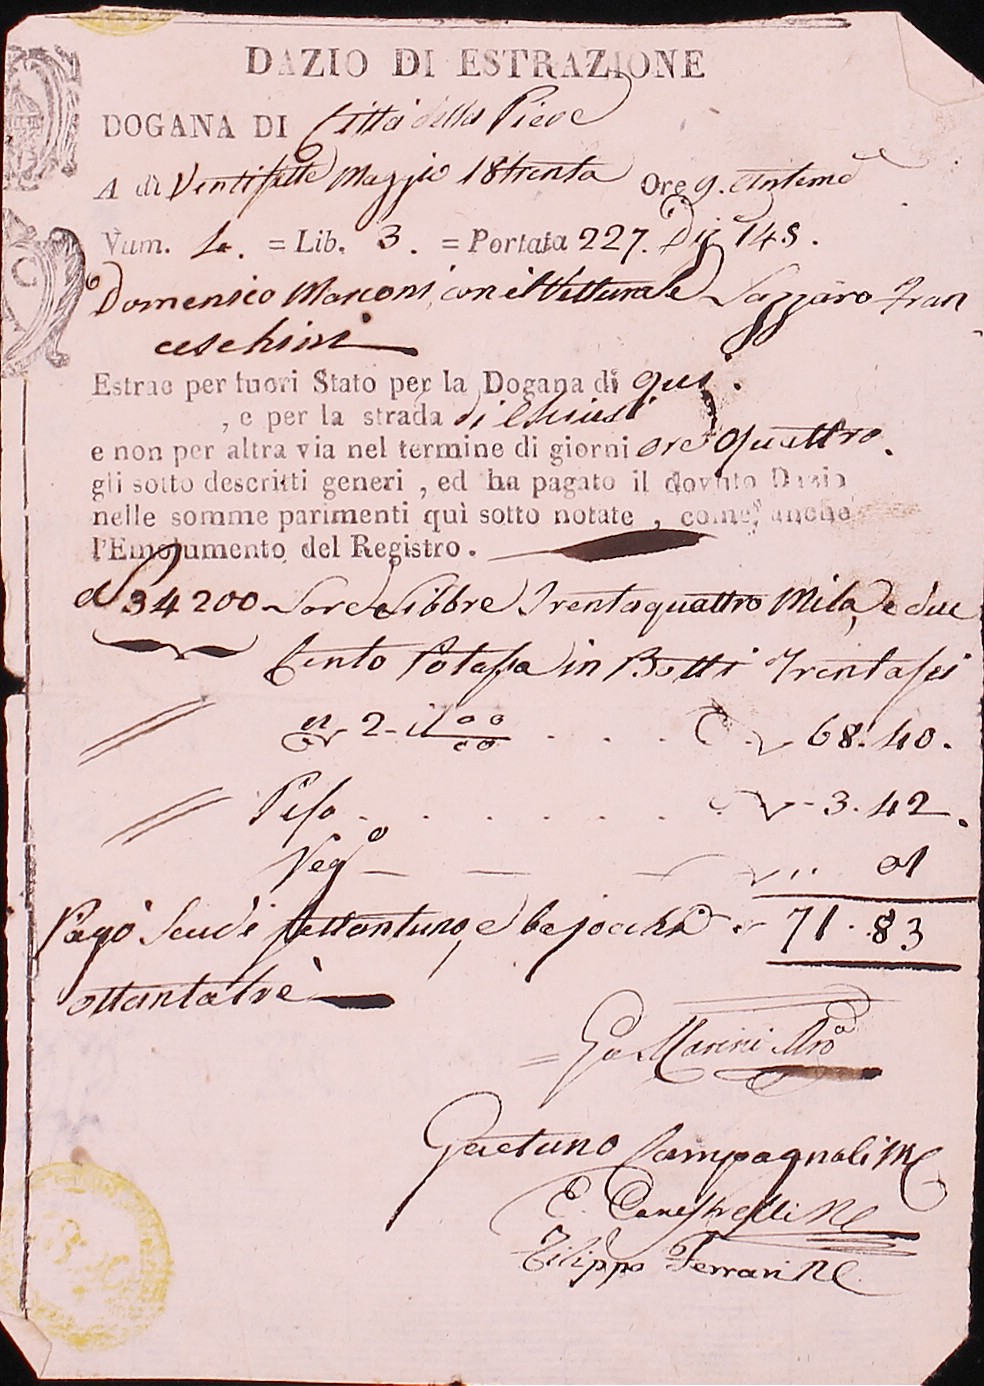 DAZIO DI ESTRAZIONE
DOGANA DI Città della Pieve
A dì Ventisette Maggio 18trenta Ore 9. Antemᵉ
Num. 4. = Lib. 3. = Portata 227. 148.
Domenico Marconi, con il Vetturale Lazzaro Fran
ceschini
Estrae per fuori Stato per la Dogana di qui.
, e per la strada di Chiusi
e non per altra via nel termine di giorni ore Quattro.
gli sotto descritti generi , ed ha pagato il dovuto Dazio
nelle somme parimenti quì sotto notate , come anche
l'Emolumento del Registro.
34200 Lorde Libbre Trentaquattro Mila, e due
Cento Potassa in Botti Trentasei
2 il 00/00 . . . 68.40.
Peso . . . . . . 3.42.
Regᵒ 01
Pagò Scudi Settantuno, e bajocchi 71.83
ottantatrè
Marini Mroᵃ
Gaetano Campagnoli
E. Canestrelli
Filippo Ferrari